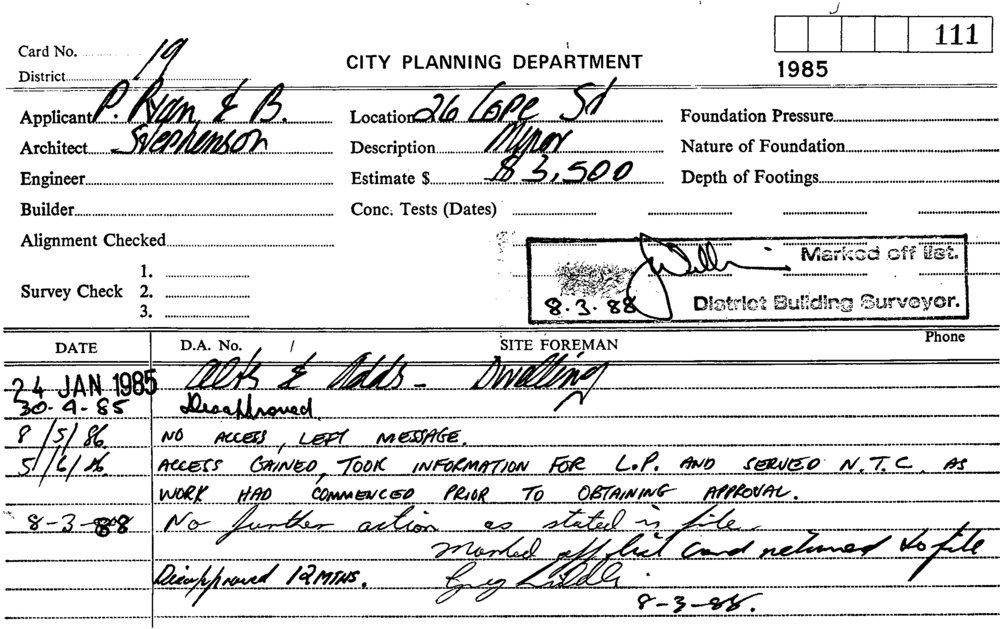 111
Card No. 19
CITY PLANNING DEPARTMENT
1985
District
Applicant P. Ryan & B.
Location 26 Cope St
Foundation Pressure
Architect Stephenson
Description Minor
Nature of Foundation
Engineer
Estimate $ $3,500
Depth of Footings
Builder
Conc. Tests (Dates)
Alignment Checked
Marked off list.
1.
Survey Check 2.
8.3.88 District Building Surveyor.
3.
DATE D.A. No. / SITE FOREMAN Phone
24 JAN 1985 Alts & Adds - Dwelling
30-4-85 Disapproved
8/5/86 NO ACCESS, LEFT MESSAGE.
5/6/86 ACCESS GAINED, TOOK INFORMATION FOR L.P. AND SERVED N.T.C. AS
WORK HAD COMMENCED PRIOR TO OBTAINING APPROVAL.
8-3-88 No further action as stated in file
Marked off list card returned to file
Disapproved 12 MTHS. Greg
8-3-88.